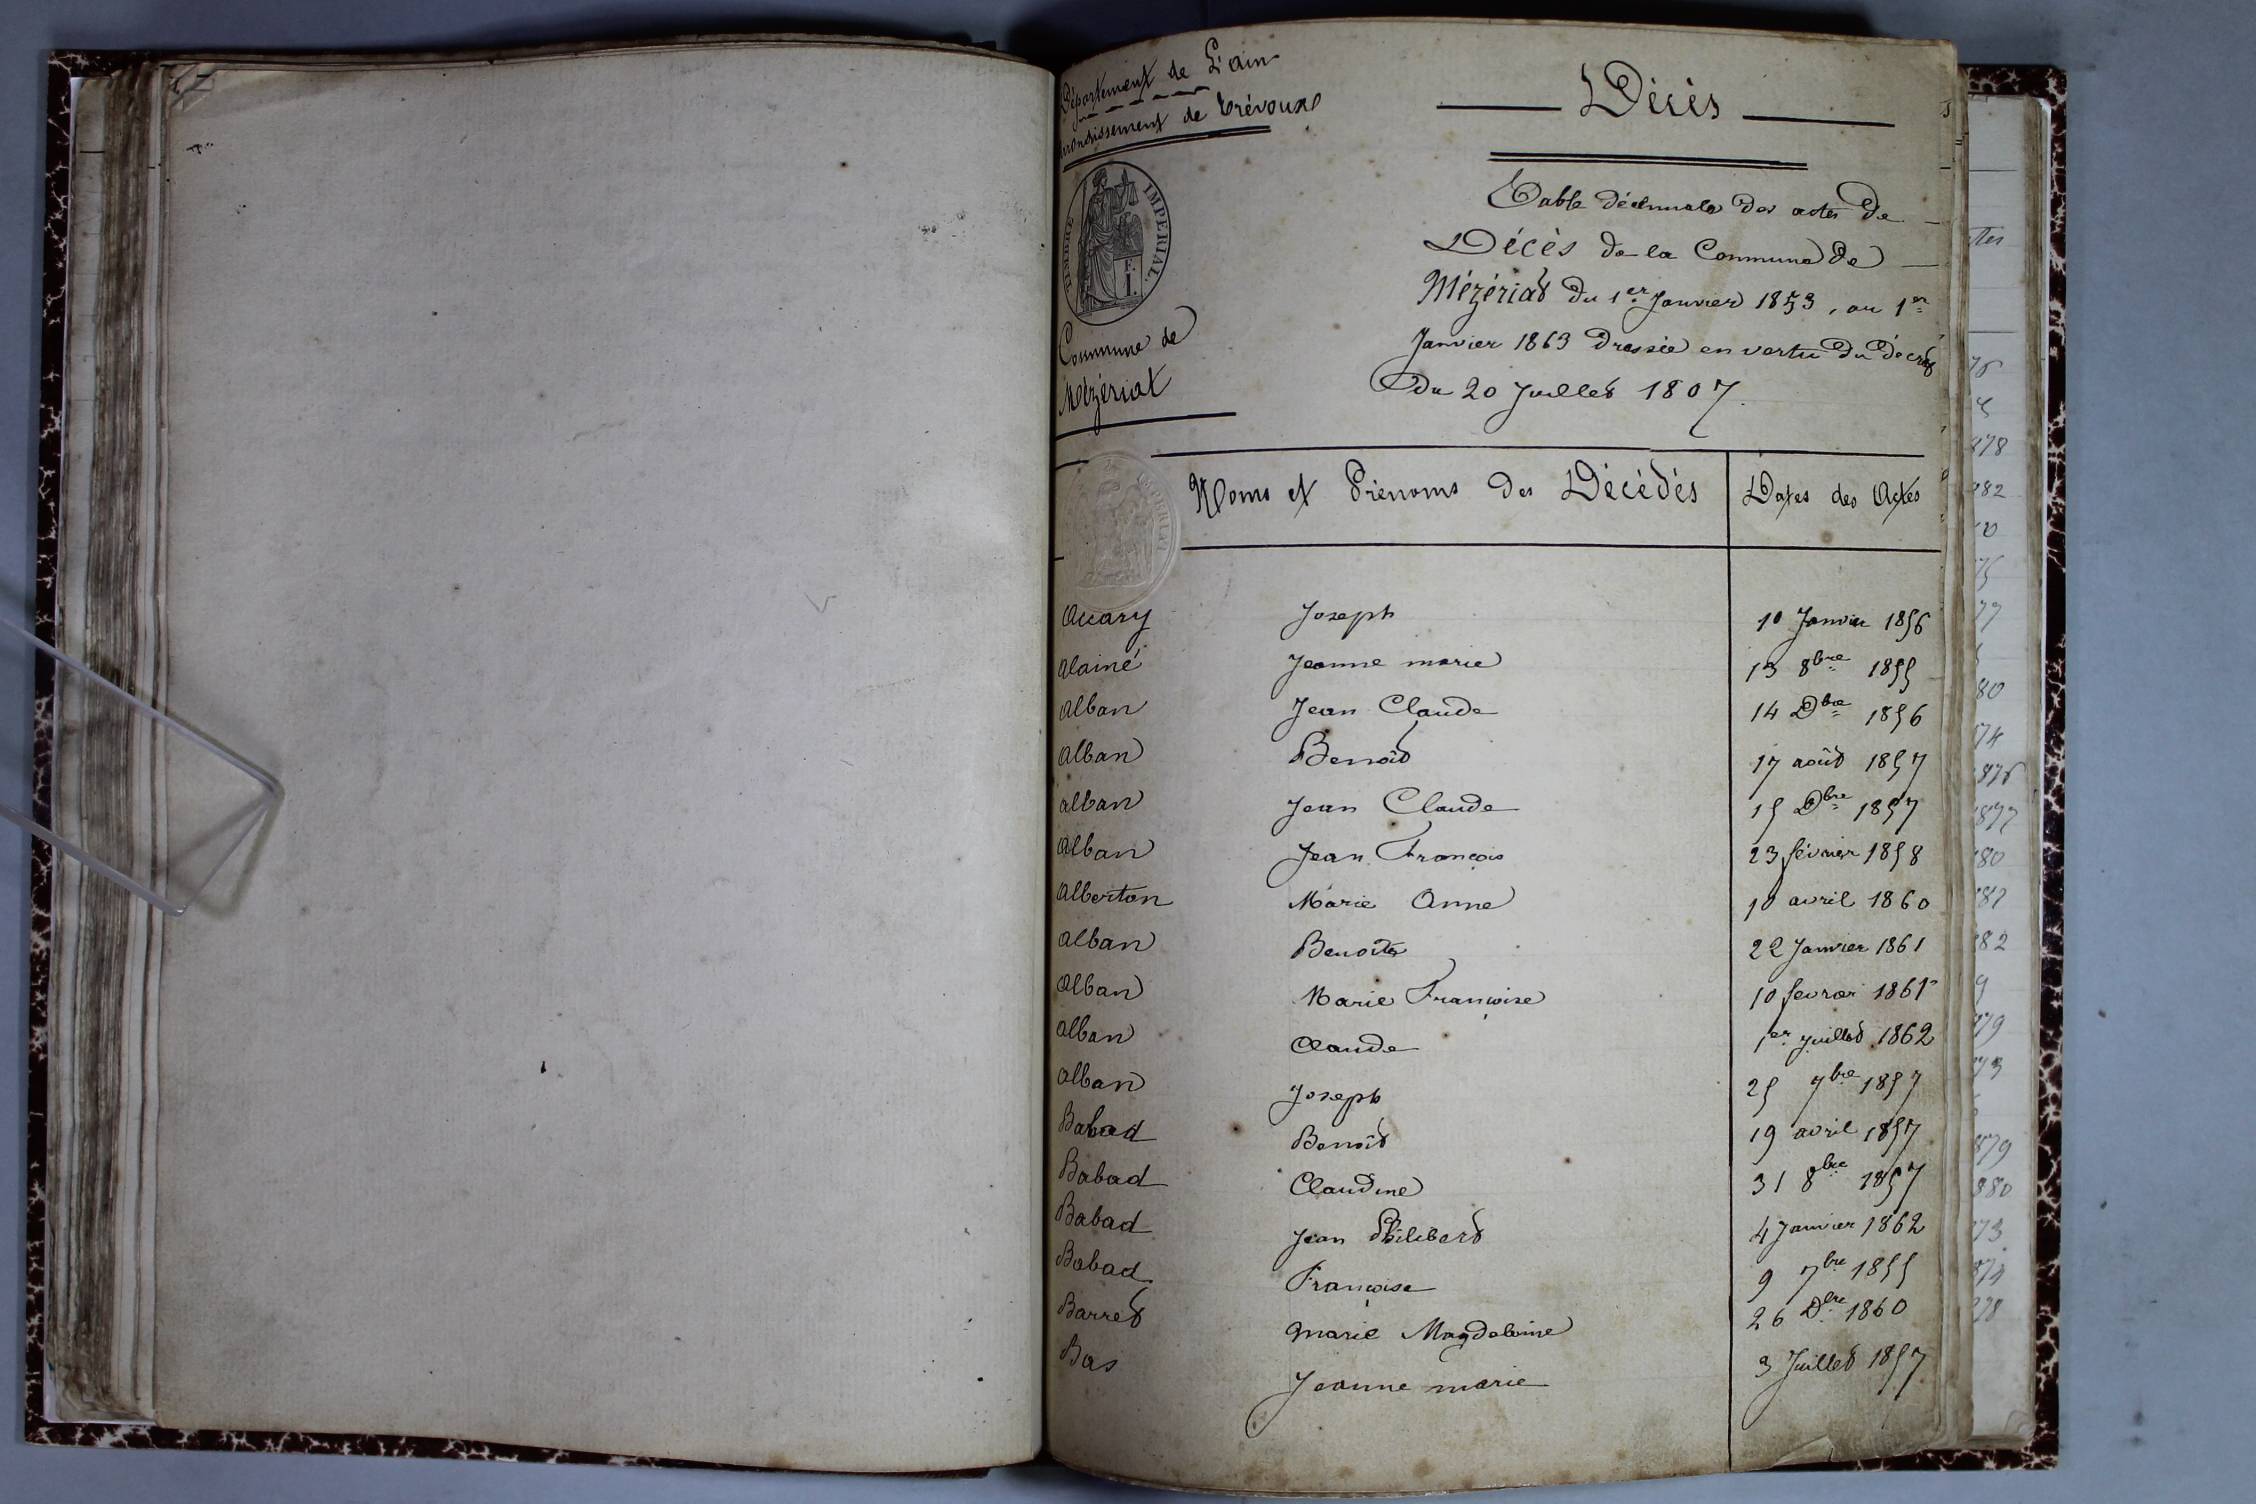 Département de L'ain
arrondissement de Trévoux
Décès
TIMBRE IMPÉRIAL
E. I.
Commune de
Mézériat
Table décennale des actes de
Décès de la Commune de
Mézériat du 1er Janvier 1853, au 1er
Janvier 1863 Dressée en vertu du décret
du 20 Juillet 1807.
Noms et Prénoms des Décédés Dates des Actes
Accary Joseph 10 Janvier 1856
Alainé Jeanne marie 13 8bre 1855
Alban Jean Claude 14 Dbre 1856
Alban Benoît 17 août 1857
alban Jean Claude 15 Dbre 1857
Alban Jean François 23 février 1858
Alberton Marie Anne 10 avril 1860
alban Benoîte 22 Janvier 1861
Alban Marie Françoise 10 fevrier 1861
alban Claude 1er juillet 1862
alban Joseph 25 7bre 1857
Babad Benoît 19 avril 1857
Babad Claudine 31 8bre 1857
Babad Jean Philibert 4 Janvier 1862
Babad Françoise 9 7bre 1855
Barret Marie Magdeleine 26 Dbre 1860
Bas Jeanne marie 3 Juillet 1857